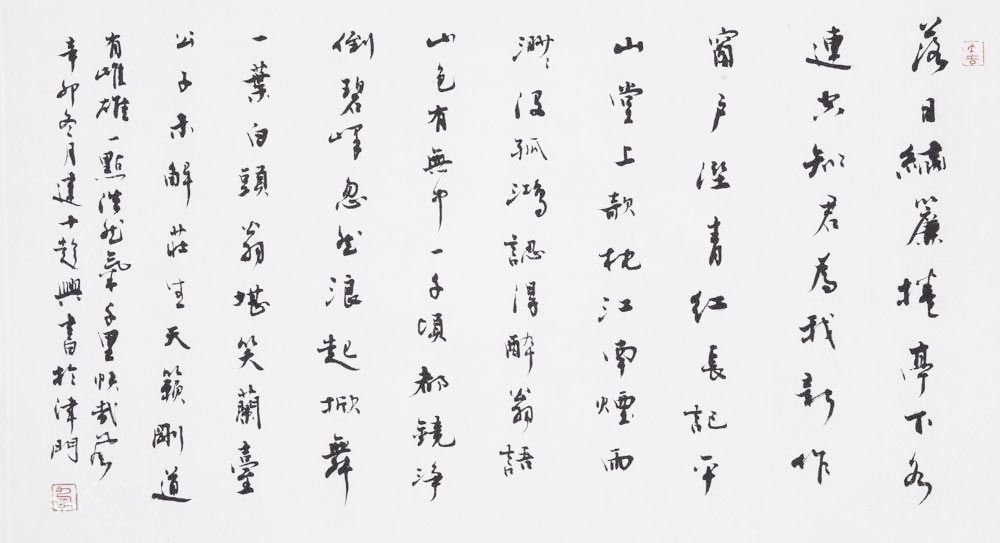 落日繡簾捲亭下水
連空知君為我新作
窗戶溼青紅長記平
山堂上欹枕江南煙雨
渺渺沒孤鴻認得醉翁語
山色有無中一千頃都鏡淨
倒碧峰忽然浪起掀舞
一葉白頭翁堪笑蘭臺
公子未解莊生天籟剛道
有雌雄一點浩然氣千里快哉風
辛卯冬月建十趁興書於津門